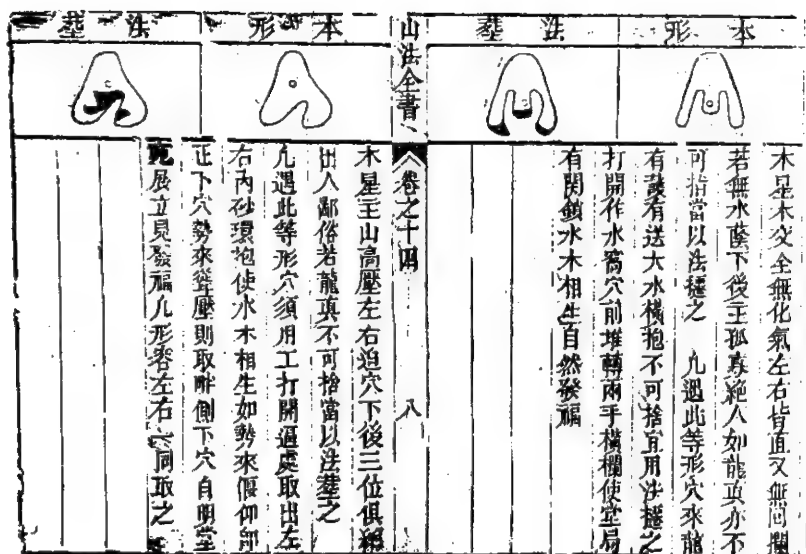 本形
法塟
木星木交全無化氣左右皆直又無回攔
若無水蔭下後主孤寡絶人如龍真亦不
可捨當以法塟之 凡遇此等形穴來龍
有護有送大水橫抱不可捨宜用法塟之
打開作水窩穴前堆轉兩手橫欄使堂局
有関鎖水木相生自然發福
山法全書 卷之十四 八
本形
法塟
木星主山高壓左右迫穴下後三位俱絕
出人鄙俗若龍真不可捨當以法塟之
凡遇此等形穴須用工打開逼處取出左
右內砂環抱使水木相生如勢來偃仰卽
正下穴勢來聳壓則取畔側下穴自明堂
寛展立見發福凡形客左右同取之